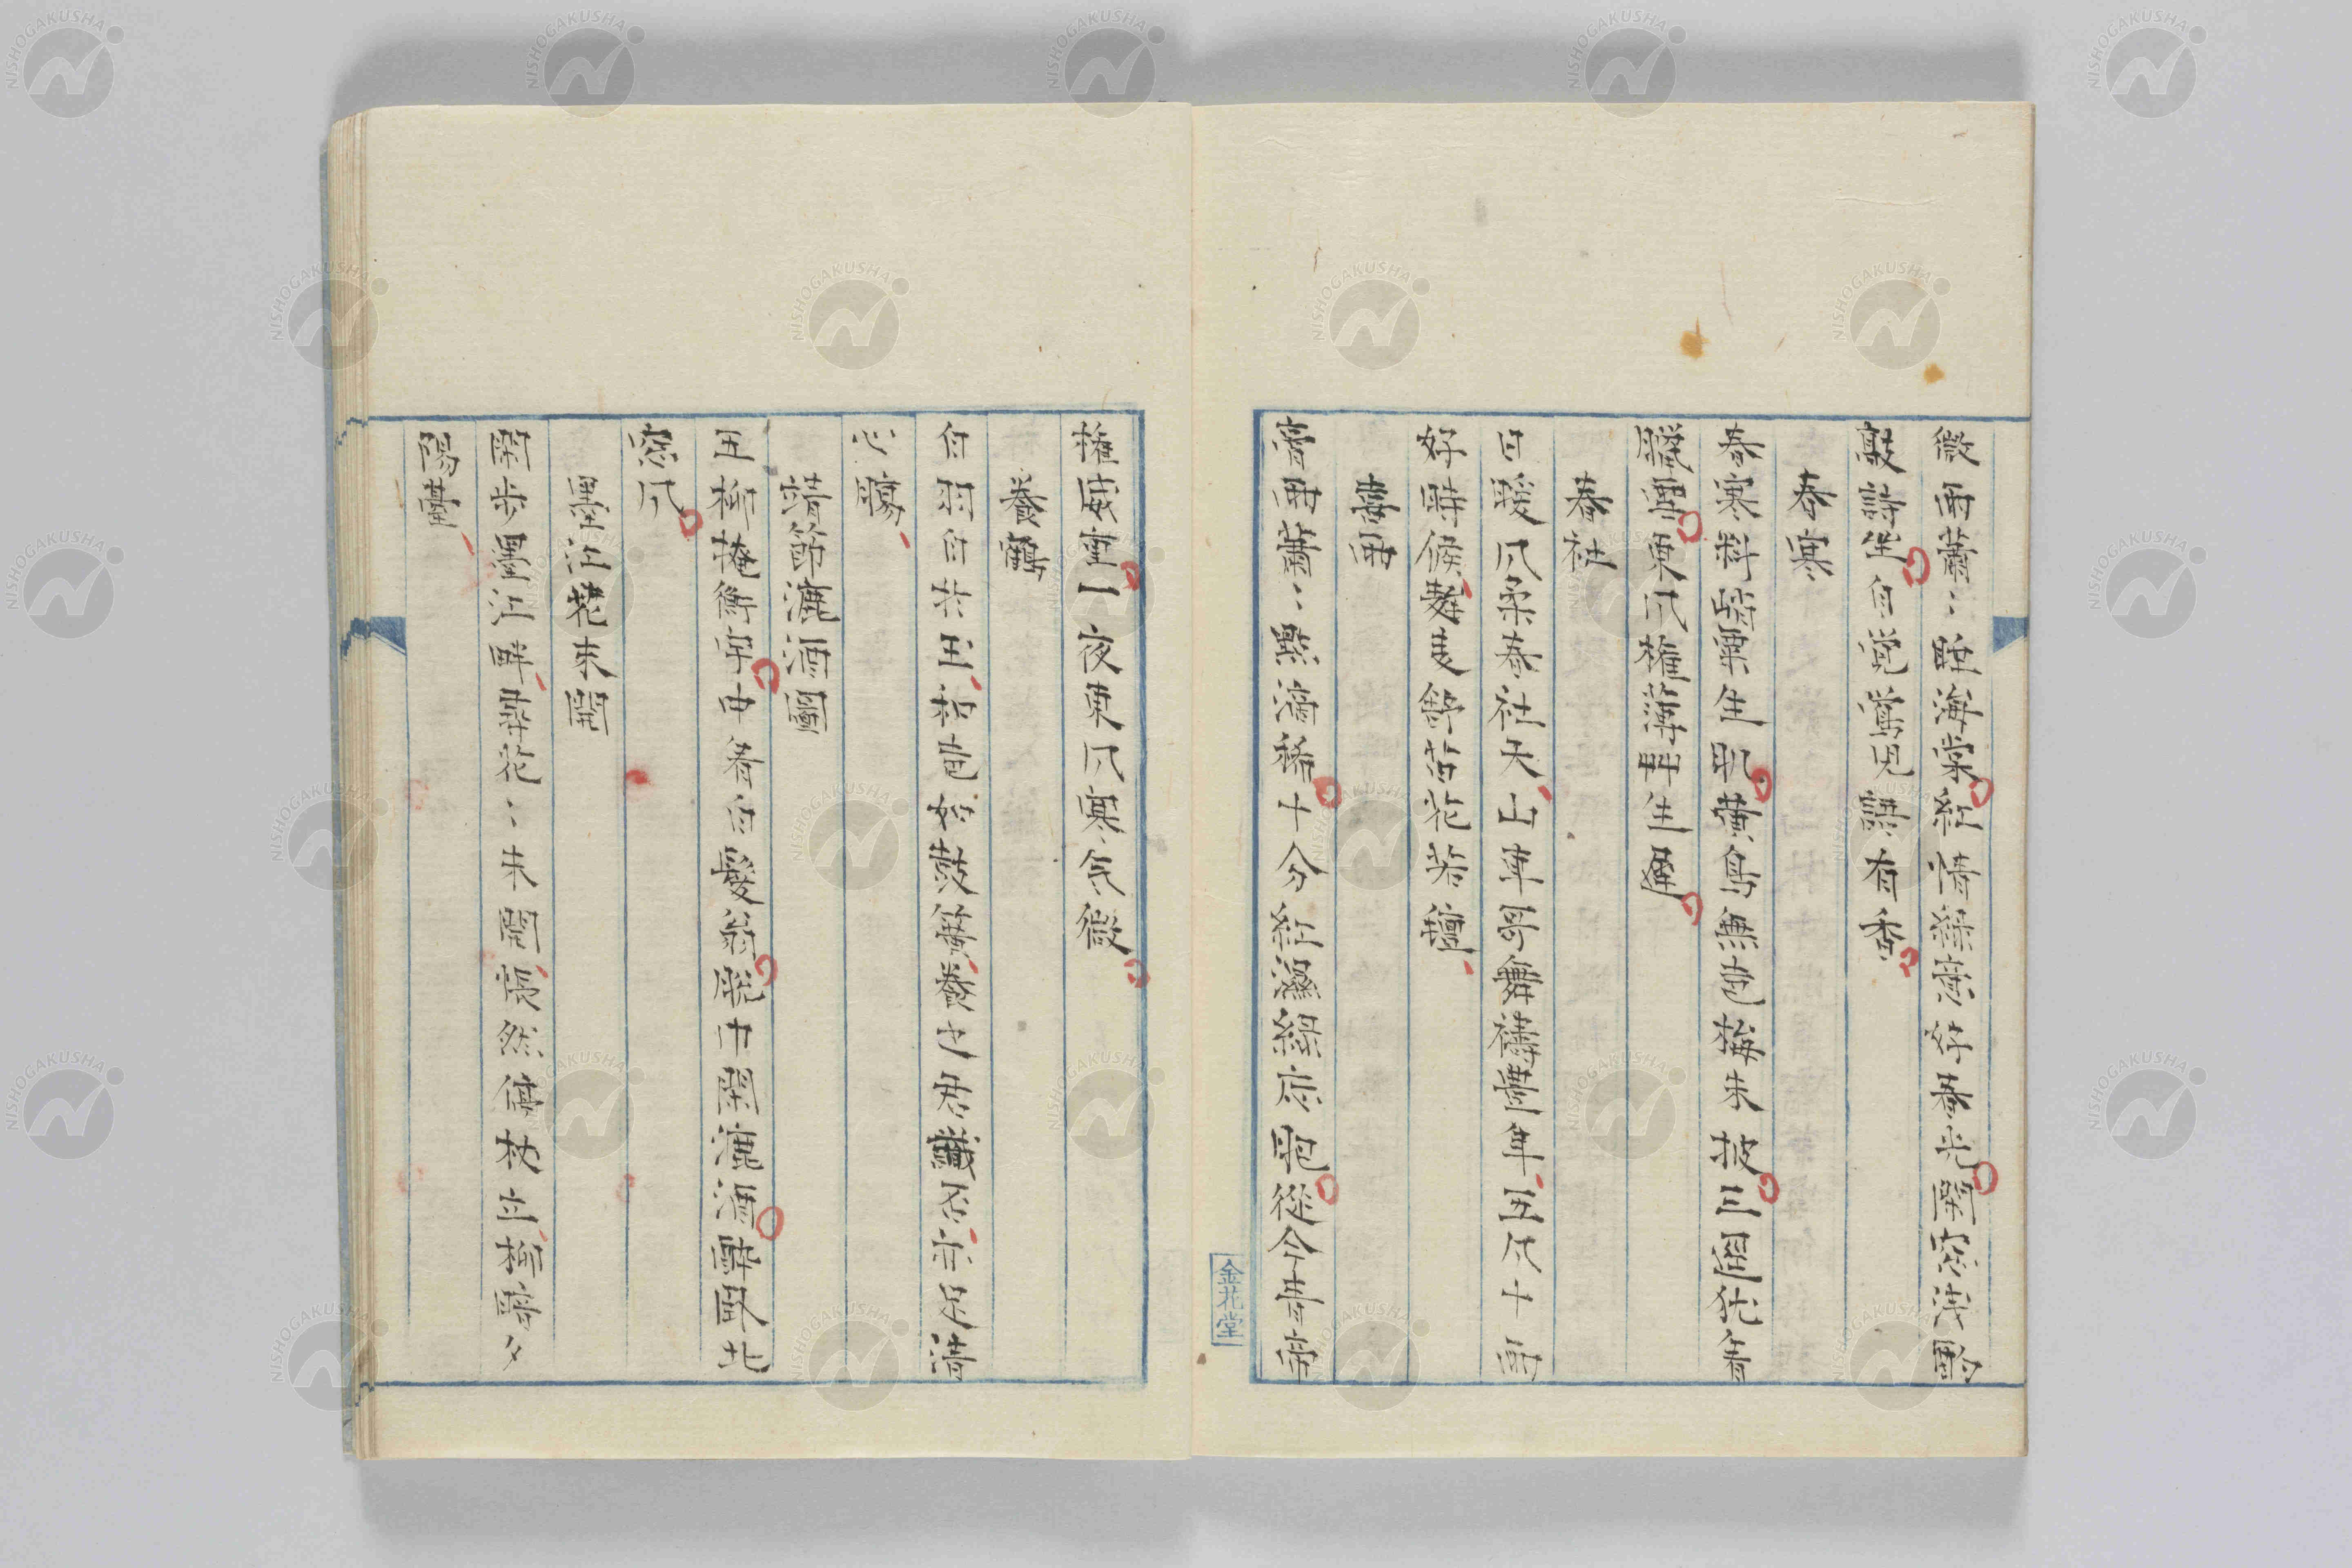 微雨蕭〻睡海棠紅情緑意好春光閑窓深閉
敲詩坐自覚鶯児語有香
春寒
春寒料峭粟生肌黄鳥無声梅未披三逕猶看
臘雪東風権薄艸生遅
春社
日暖風柔春社天山車哥舞禱豊年五風十雨
好時候麰麦餘苗花若氈
喜雨
膏雨蕭〻點滴稀十分紅濕緑応肥従今青帝
権威重一夜東風寒気微
養鶴
白羽白於玉和声如鼓簧養之思讖否市以清
心腸
靖節漉酒圖
五柳掩衡宇由看白髪翁脱巾閑漉酒酔臥北
窓風
墨江花未開
閑歩墨江畔尋花〻未開悵然倚杖立柳暗夕
陽臺
金花堂
NISHOGAKUSHA